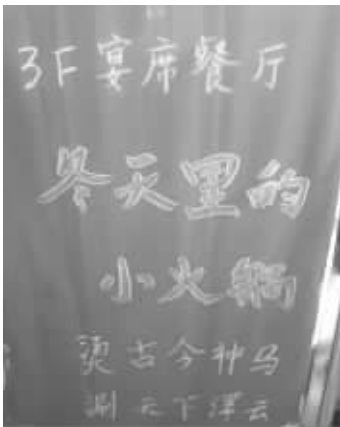 3F宴席餐厅
冬天里的
小火锅
烫古今神马
涮天下浮云